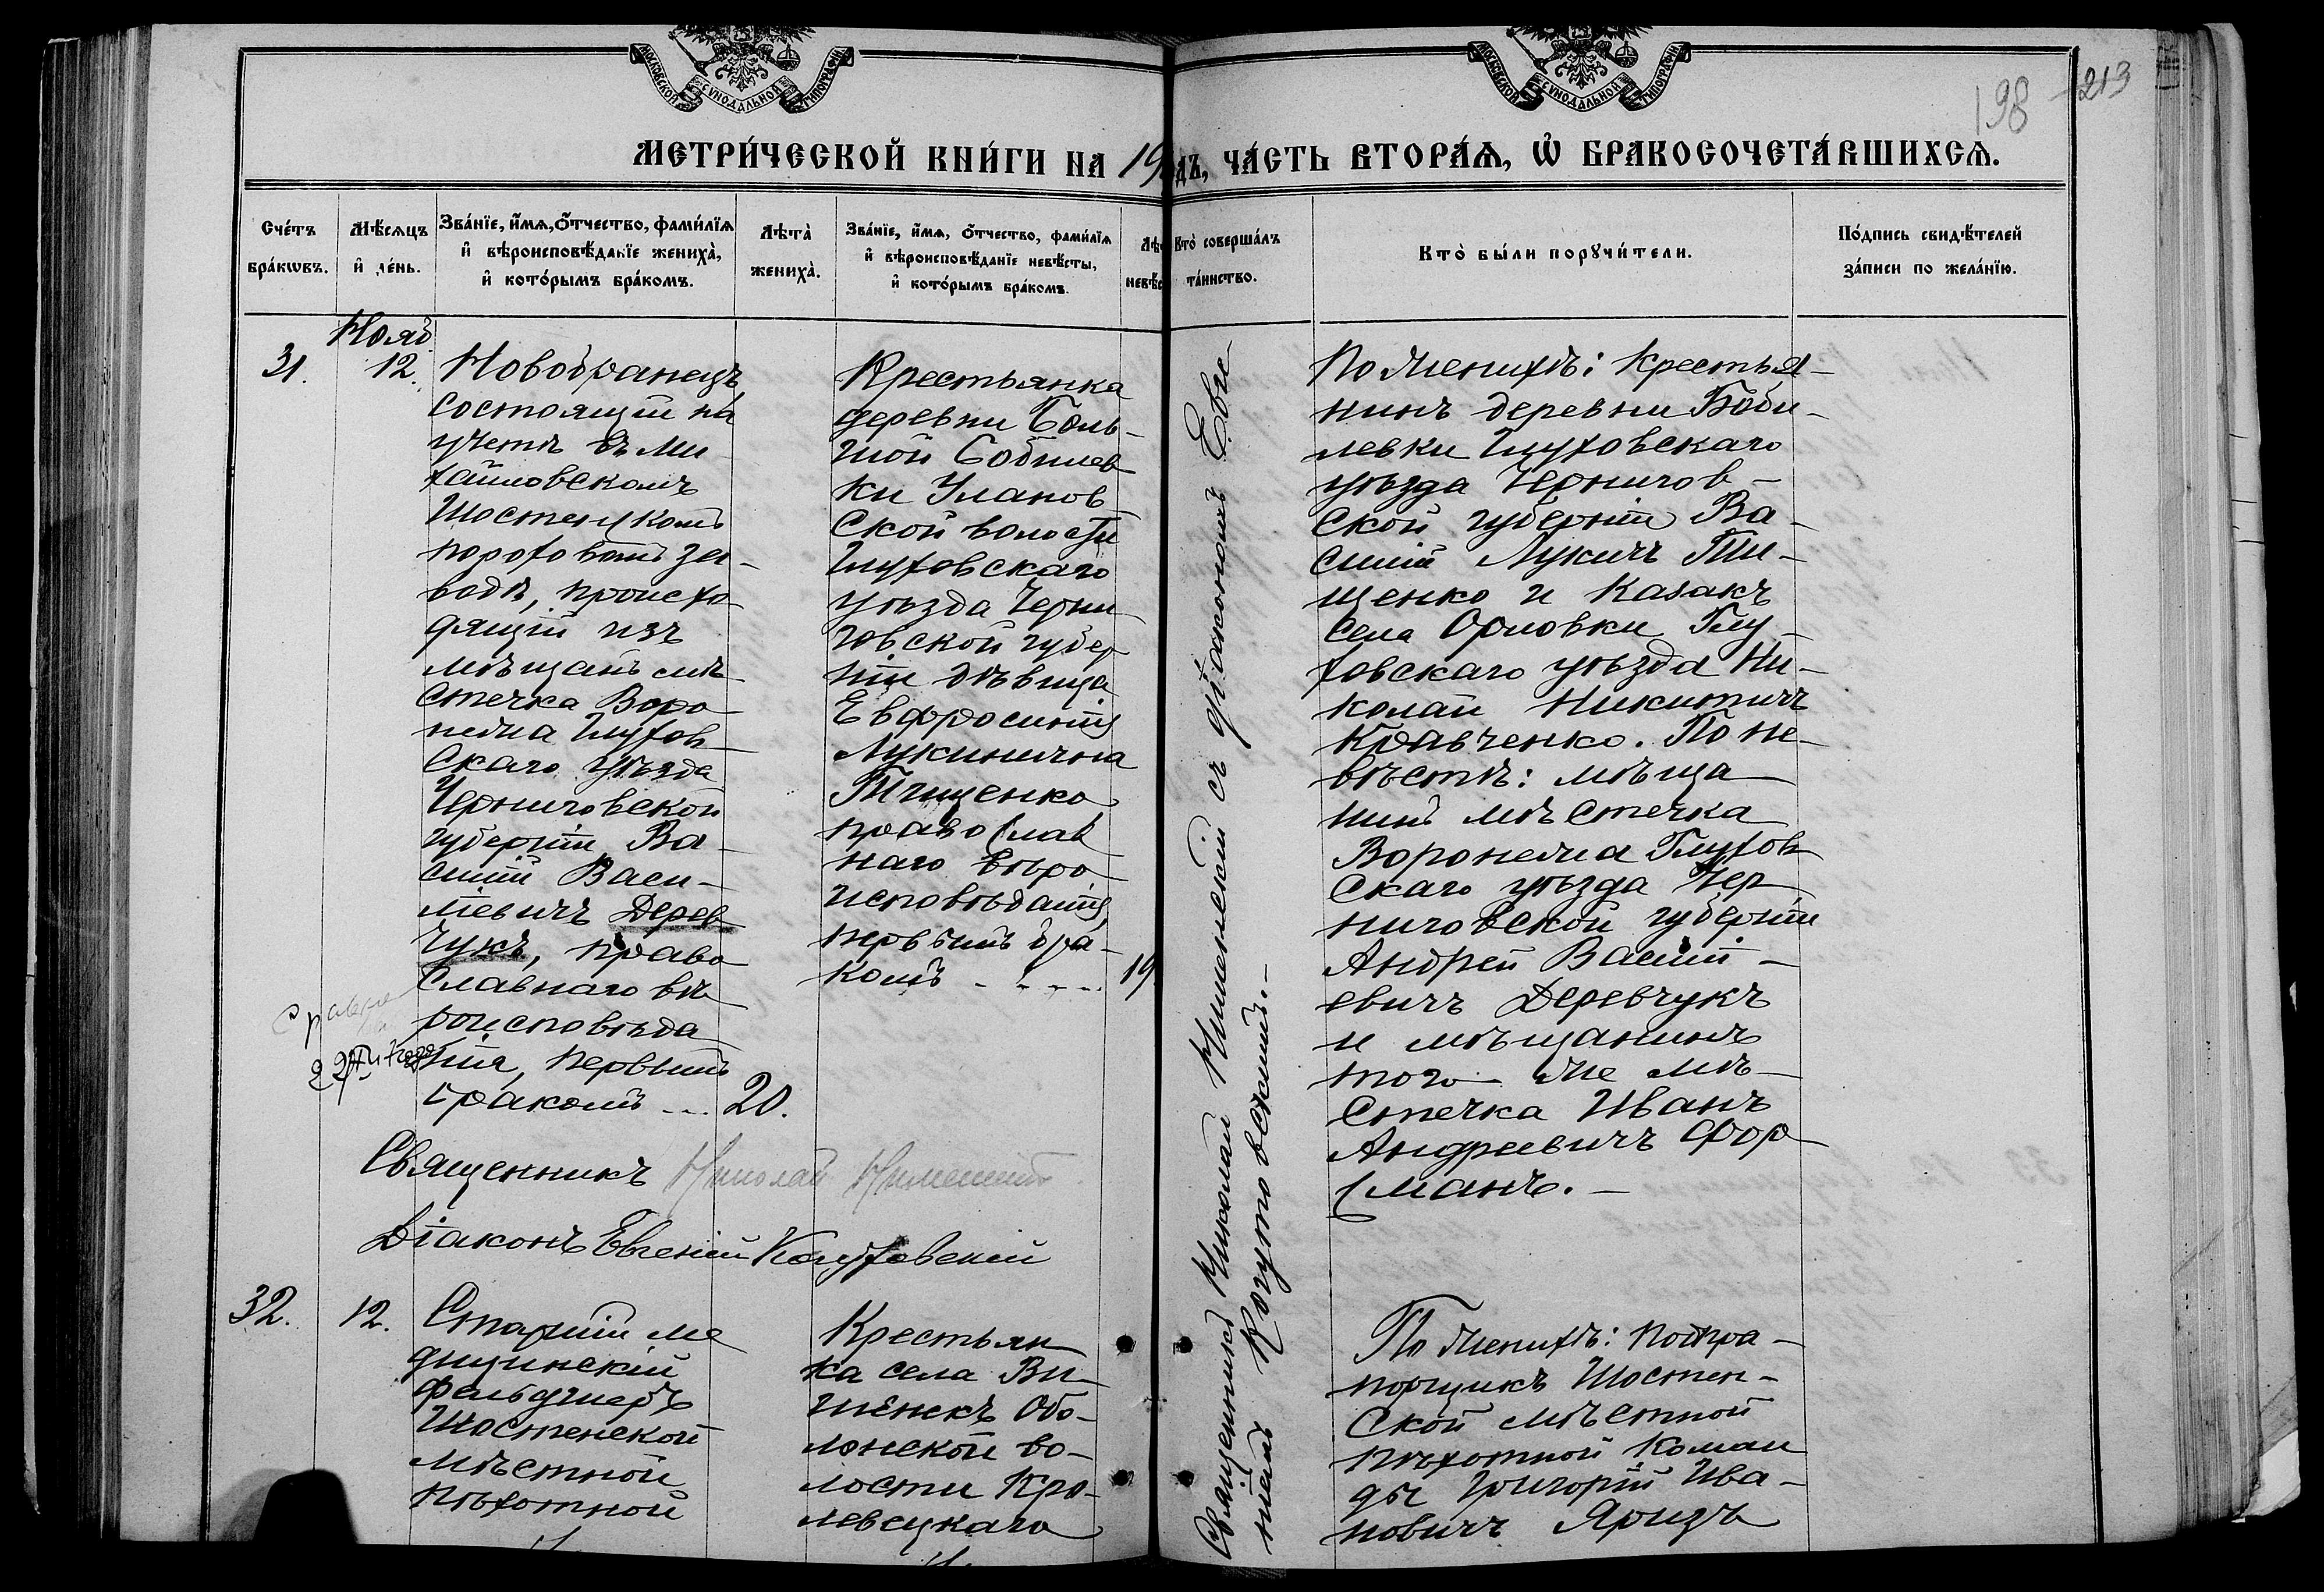 МОСКОВСКОЙ СѴНОДАЛЬНОЙ ТИПОГРАФІИ
МОСКОВСКОЙ СѴНОДАЛЬНОЙ ТИПОГРАФІИ
198 213
МЕТРИ́ЧЕСКОЙ КНИ́ГИ НА 19 дъ, ЧА́СТЬ ВТОРА́Я, Ѡ҆ БРАКОСОЧЕТА́ВШИХСЯ.
Сче́тъ
бра́кѡвъ.
Мѣ́сяцъ
и҆ де́нь.
Зва́нїе, и҆́мя, ѻ҆́тчество, фами́лїя
и҆ вѣроисповѣ́данїе жениха̀,
и҆ кото́рымъ бра́комъ.
Лѣта̀
жениха̀.
Зва́нїе, и҆́мя, ѻ҆́тчество, фами́лїя
и҆ вѣроисповѣ́данїе невѣ́сты,
и҆ кото́рымъ бра́комъ.
Лѣ
невѣс
Кто̀ соверша́лъ
та́инство.
Кто̀ бы́ли порꙋчи́тели.
По́дпись свидѣ́телей
за́писи по жела́нїю.
31.
Нояб.
12.
Новобранецъ
состоящій на
учетѣ въ Ми
хайловскомъ
Шостенскомъ
пороховомъ за-
водѣ, происхо
дящій изъ
мѣщанъ мѣ
стечка Воро
нежа Глухов
скаго уѣзда
Черниговской
губерніи Ва-
силій Васи-
ліевичъ Дерев
чукъ, право
славнаго вѣ
роисповѣда
нія, первымъ
бракомъ ... 20.
Крестьянка
деревни Боль-
шой Собилев
ки Уланов
ской волости
Глуховскаго
уѣзда Черни
говской губер
ніи дѣвица
Евфросинія
Лукинична
Тищенко
православ
наго вѣро
исповѣданія,
первымъ бра-
комъ - - - - . 19
Священникъ Николай
Діаконъ Евгеній
Священникъ Николай съ діакономъ Евге-
ніемъ
По женихѣ: Крестья-
нинъ деревни
левки Глуховскаго
уѣзда Чернигов-
ской губерніи Ва-
силій Лукичъ Ти-
щенко и казакъ
села Орловки Глу-
ховскаго уѣзда Ни-
колай Никитичъ
Кравченко. По не-
вѣстѣ: мѣща
нинъ мѣстечка
Воронежа Глухов
скаго уѣзда Чер
ниговской губерніи
Андрей Василі-
евичъ Деревчукъ
и мѣщанинъ
того же мѣ-
стечка Иванъ
Андреевичъ Фор
манъ. -
32.
12.
Старшій ме
дицинскій
фельдшеръ
Шостенской
мѣстной
пѣхотной
Крестьян
ка села Ви
шенекъ Обо-
лонской во-
лости Кро-
левецкаго
По женихѣ: подпра-
порщикъ Шостен-
ской мѣстной
пѣхотной коман
ды Григорій Ива-
новичъ Яризъ